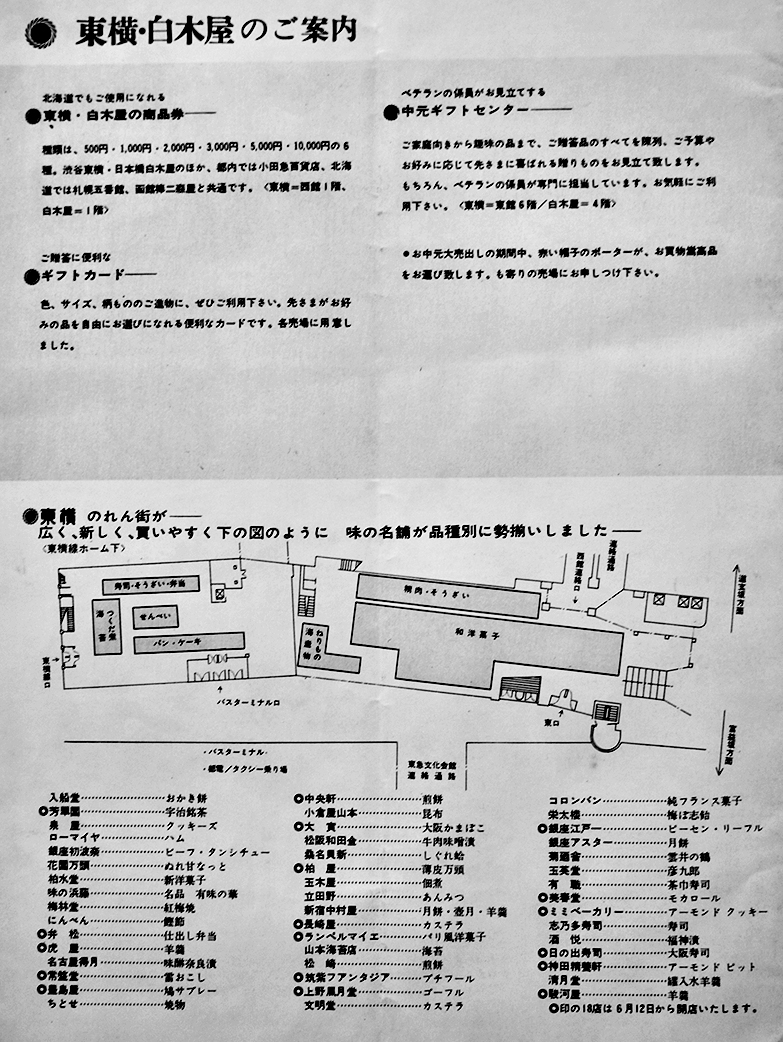 東横・白木屋のご案内
北海道でもご使用になれる
●東横・白木屋の商品券──
種類は、500円・1,000円・2,000円・3,000円・5,000円・10,000円の6
種。渋谷東横・日本橋白木屋のほか、都内では小田急百貨店、北海
道では札幌五番館、函館棒二森屋と共通です。〈東横=西館1階、
白木屋=1階〉
ご贈答に便利な
●ギフトカード──
色、サイズ、柄もののご進物に、ぜひご利用下さい。先さまがお好
みの品を自由にお選びになれる便利なカードです。各売場に用意し
ました。
ベテランの係員がお見立てする
●中元ギフトセンター──
ご家庭向きから趣味の品まで、ご贈答品のすべてを陳列、ご予算や
お好みに応じて先さまに喜ばれる贈りものをお見立て致します。
もちろん、ベテランの係員が専門に担当しています。お気軽にご利
用下さい。〈東横=東館6階/白木屋=4階〉
●お中元大売出しの期間中、赤い帽子のポーターが、お買物
をお運び致します。も寄りの売場にお申しつけ下さい。
●東横 のれん街が──
広く、新しく、買いやすく下の図のように 味の名舗が品種別に勢揃いしました──
〈東横線ホーム下〉
寿司・そうざい・弁当
海苔
つくだ煮
せんべい
パン・ケーキ
東横線口
バスターミナル口
海産物
ねりもの
精肉・そうざい
和洋菓子
西館連絡口
連絡通路
道玄坂方面
東口
宮益坂方面
・バスターミナル・
・都電/タクシー乗り場
東急文化会館
連絡通路
入船堂……おかき餅
◎芳翠園……宇治銘茶
泉屋……クッキーズ
ローマイヤ……ハム
銀座初波奈……ビーフ・タンシチュー
花園万頭……ぬれ甘なっと
柏水堂……新洋菓子
味の浜藤……名品 有味の華
梅林堂……紅梅焼
にんべん……鰹節
◎弁松……仕出し弁当
◎虎屋……羊羹
名古屋得月……味醂奈良漬
◎常盤堂……雷おこし
◎豊島屋……鳩サブレー
ちとせ……焼物
◎中央軒……煎餅
小倉屋山本……昆布
◎大寅……大阪かまぼこ
松阪和田金……牛肉味噌漬
桑名貝新……しぐれ蛤
◎柏屋……薄皮万頭
玉木屋……佃煮
立田野……あんみつ
新宿中村屋……月餅・壺月・羊羹
◎長崎屋……カステラ
◎ランペルマイエ……パリ風洋菓子
山本海苔店……海苔
松崎……煎餅
◎筑紫フアンタジア……プチフール
◎上野風月堂……ゴーフル
文明堂……カステラ
コロンバン……純フランス菓子
栄太楼……梅ぼ志飴
◎銀座江戸一……ピーセン・リーフル
銀座アスター……月餅
菊廼舎……雲井の鶴
玉英堂……彦九郎
有職……茶巾寿司
◎美春堂……モカロール
◎ミミベーカリー……アーモンド クッキー
志乃多寿司……寿司
酒悦……福神漬
◎日の出寿司……大阪寿司
◎神田精養軒……アーモンド ビット
清月堂……罐入水羊羹
◎駿河屋……羊羹
◎印の18店は6月12日から開店いたします。